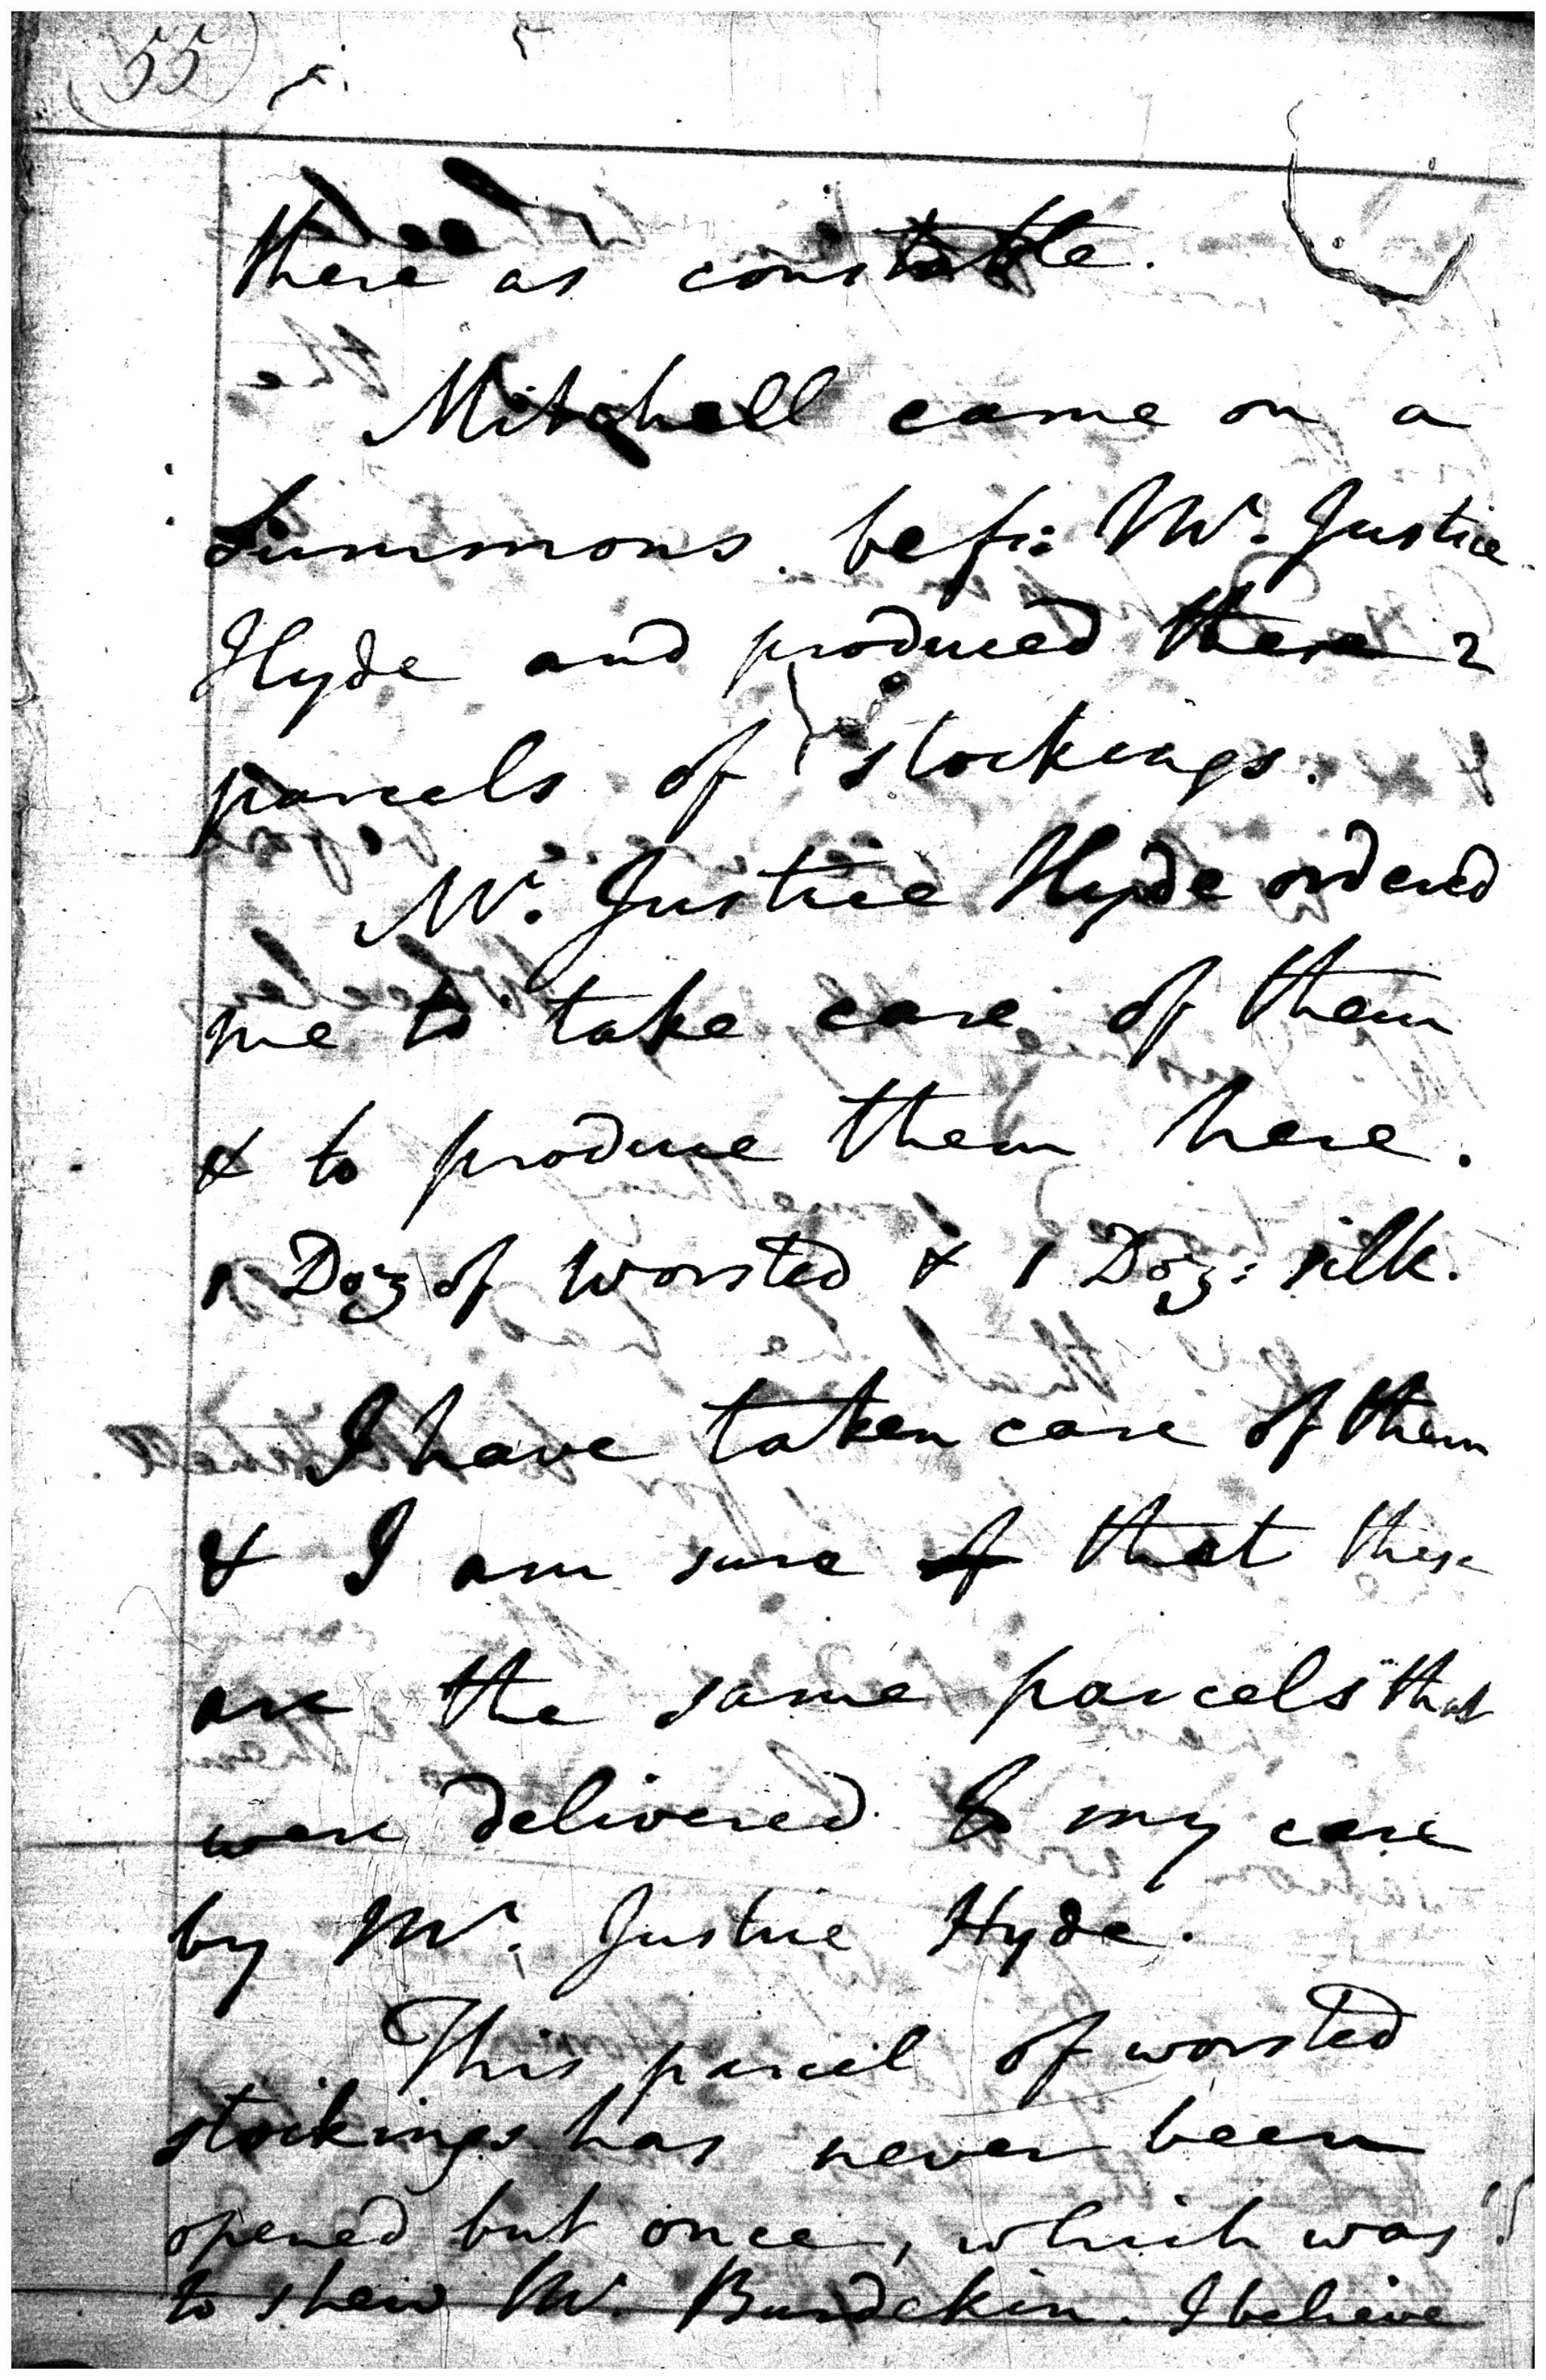 55
there as constable.
Mitchell came on a
Summons befr: Mr. Justice
Hyde and produced these 2
parcels of stockings.
Mr. Justice Hyde ordered
me to take care of them
& to produce them here.
1 Doz of worsted & 1 Doz: silk.
I have taken care of them
& I am sure that these
are the same parcels that
were delivered to my care
by Mr. Justice Hyde.
This parcel of worsted
stockings has never been
opened but once, which was
to shew Mr. Burdekin. I believe